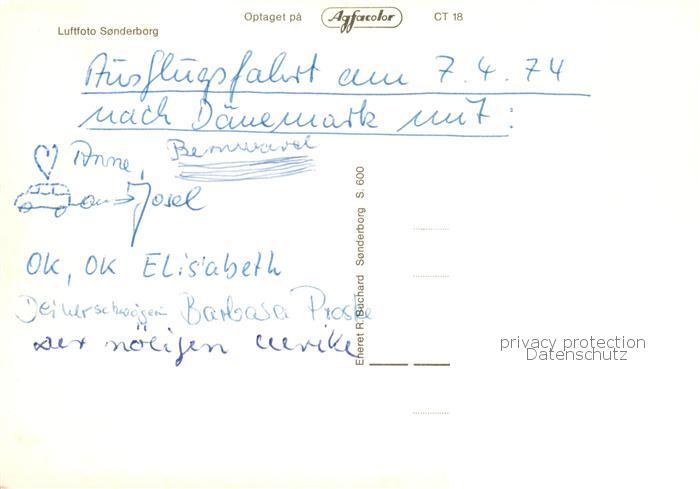 Optaget på Agfacolor CT 18
Luftfoto Sønderborg
Ausflugsfahrt am 7.4.74
nach Dänemark mit:
Anne, Bernward
Josef
OK, OK Elisabeth
Barbara Proske
der nötigen Ulrike
Eneret R. Buchard Sønderborg S. 600
privacy protection
Datenschutz